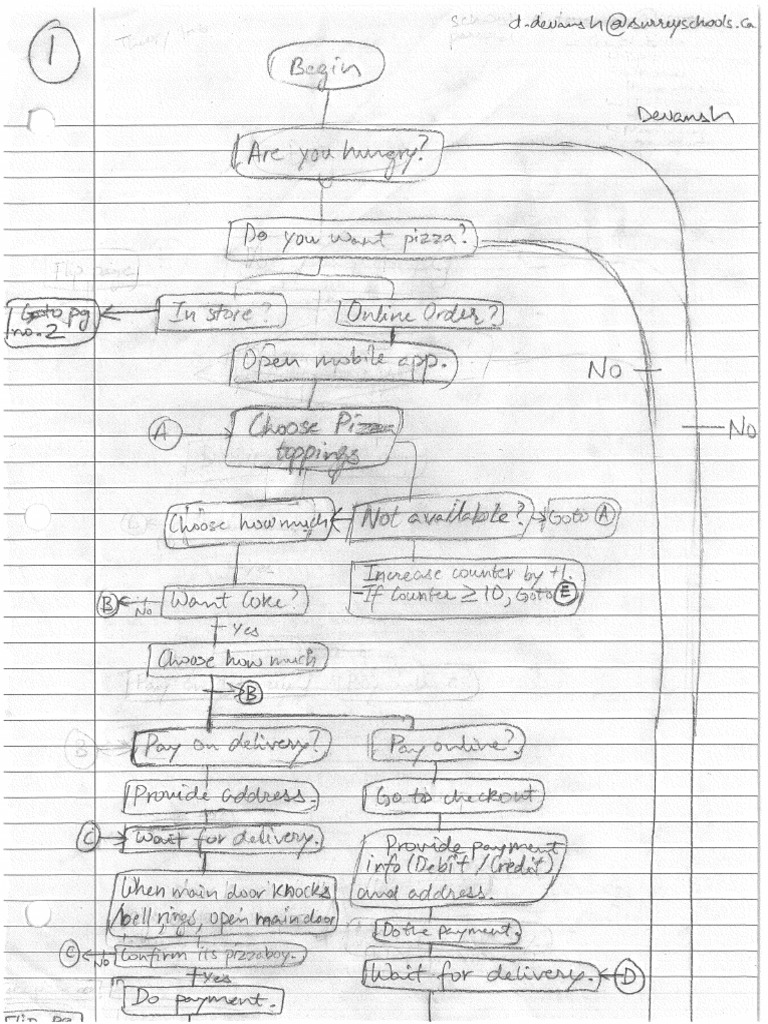 d.devansh@surreyschools.ca
1
Begin
Devansh
Are you hungry?
Do you want pizza?
Goto pg
no. 2
In store?
Online Order?
Open mobile app.
No
No
A
Choose Pizza
toppings
Choose how much
Not available?
Goto A
Increase counter by +1.
-If counter ≥ 10, Goto E
B
No
Want Coke?
Yes
Choose how much
B
B
Pay on delivery?
Pay online?
Provide address.
Go to checkout
C
Wait for delivery.
Provide payment
info (Debit/Credit)
and address.
When main door knocks
bell rings, open main door
Do the payment.
C
No
Confirm its pizzaboy.
Yes
Wait for delivery.
D
Do payment.
Flip pg